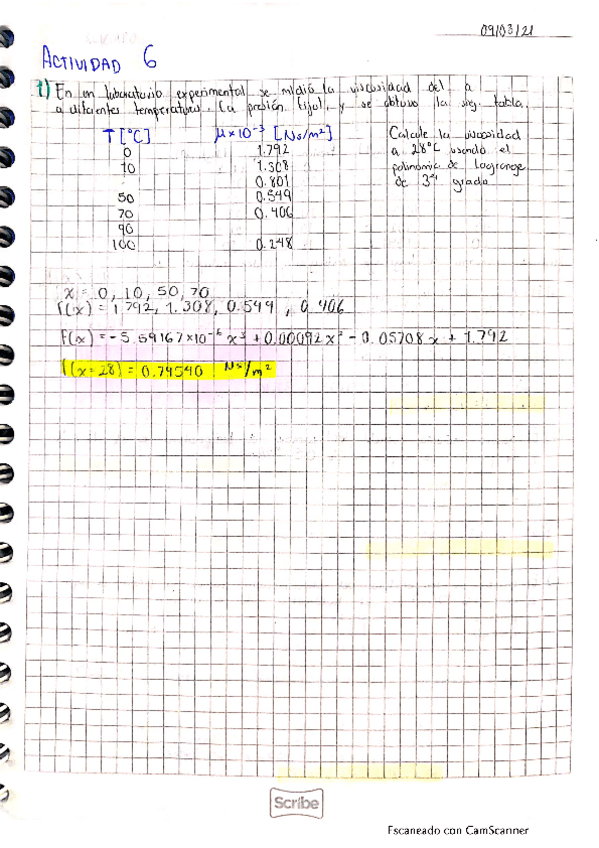 09/03/21
ACTIVIDAD 6
1) En un laboratorio experimental se midió la viscosidad del a
a diferentes temperaturas. (a presión fija), y se obtuvo la sig. tabla.
T [°C] μ×10⁻³ [Ns/m²] Calcule la viscosidad
0 1.792 a 28°C usando el
10 1.308 polinomio de Lagrange
0.801 de 3er grado
50 0.549
70 0.406
90
100 0.248
x = 0, 10, 50, 70
f(x) = 1.792, 1.308, 0.549, 0.406
f(x) = -5.59167×10⁻⁶ x³ + 0.00092x² - 0.05708x + 1.792
f(x=28) = 0.74540 Ns/m²
Scribe
Escaneado con CamScanner